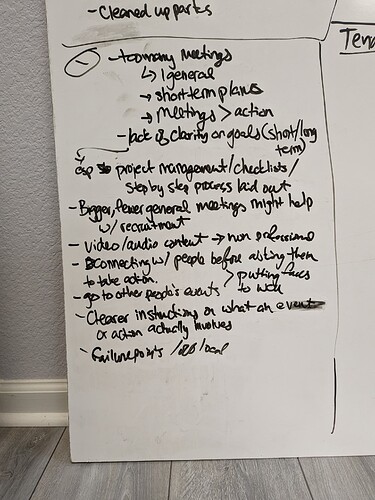 - Cleaned up parks
Tend
- too many Meetings
↳ 1 general
→ short-term plans
→ Meetings > action
- lack of clarity on goals (short/long
term)
esp project management/checklists/
step by step process laid out
- Bigger, fewer general meetings might help
w/ recruitment
- video/audio content → non professional
- Connecting w/ people before asking them
to take action.
> putting faces
to work
- go to other people's events
- Clearer instructions on what an event
or action actually involves
- Failure points /